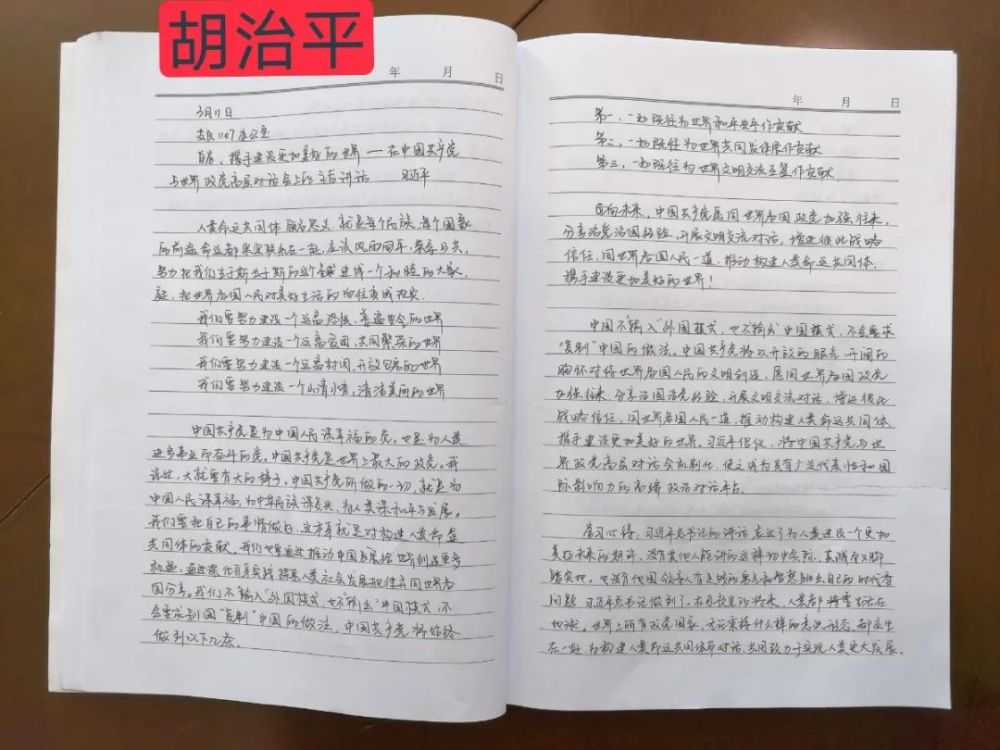 胡治平
年 月 日
3月11日
支队1107办公室
自存、携手建设更加美好的世界——在中国共产党
与世界政党高层对话会上的主旨讲话 习近平
人类命运共同体,顾名思义,就是每个民族、每个国家
的前途命运都紧紧联系在一起,应该风雨同舟,荣辱与共,
努力把我们生于斯、长于斯的这个星球建成一个和睦的大家
庭,把世界各国人民对美好生活的向往变成现实。
我们要努力建设一个远离恐惧、普遍安全的世界
我们要努力建设一个远离贫困、共同繁荣的世界
我们要努力建设一个远离封闭、开放包容的世界
我们要努力建设一个山清水秀、清洁美丽的世界
中国共产党是为中国人民谋幸福的党,也是为人类
进步事业而奋斗的党。中国共产党是世界上最大的政党。我
说过,大就要有大的样子。中国共产党所做的一切,就是为
中国人民谋幸福、为中华民族谋复兴、为人类谋和平与发展。
我们要把自己的事情做好,这本身就是对构建人类命运
共同体的贡献。我们也要通过推动中国发展给世界创造更多
机遇,通过深化自身实践探索人类社会发展规律并同世界各
国分享。我们不“输入”外国模式,也不“输出”中国模式,不
会要求别国“复制”中国的做法。中国共产党将始终
做到以下几条。
年 月 日
第一,一如既往为世界和平安宁作贡献
第二,一如既往为世界共同发展作贡献
第三,一如既往为世界文明交流互鉴作贡献
面向未来,中国共产党愿同世界各国政党加强往来,
分享治党治国经验,开展文明交流对话,增进彼此战略
信任,同世界各国人民一道,推动构建人类命运共同体,
携手建设更加美好的世界!
中国不“输入”外国模式,也不“输出”中国模式,不会要求
“复制”中国的做法。中国共产党将以开放的眼光、开阔的
胸怀对待世界各国人民的文明创造,愿同世界各国政党
加强往来,分享治国治党经验,开展文明交流对话,增进彼此
战略信任,同世界各国人民一道,推动构建人类命运共同体,
携手建设更加美好的世界。习近平倡议,将中国共产党与世
界政党高层对话会机制化,使之成为具有广泛代表性和国
际影响力的高端政治对话平台。
学习心得:习近平总书记的讲话表达了为人类建设一个更加
美好未来的期许,没有其他人能讲的这样切中会际、真诚而又脚
踏实地。也没有他国领导人有足够的勇气和智慧提出自己的时代答
问题,习近平总书记做到了。在可预见的将来,人类都将要生活在
地球。世界上所有政党国家,无论秉持什么样的意识形态,都应坐
在一起,为构建人类命运共同体而对话,共同致力于实现人类更大发展。